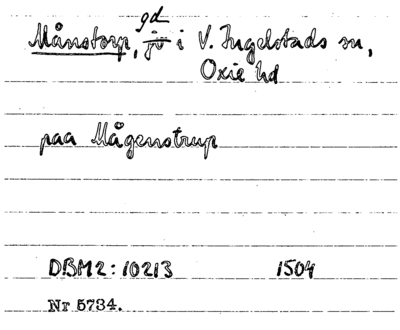 Månstorp, gd i V. Ingelstads sn,
Oxie hd
paa Mågenstrup
DBM2:10213 1504
Nr 5734.